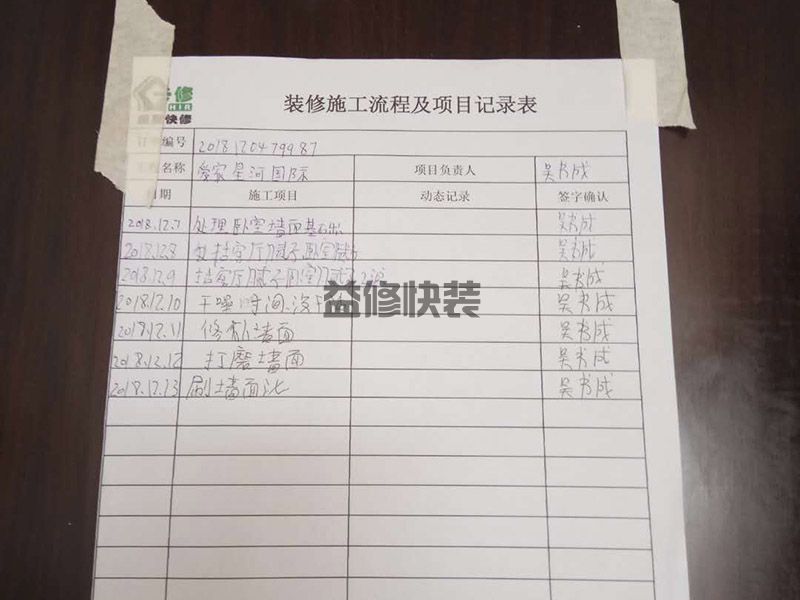 修
快修
装修施工流程及项目记录表
编号 2018120479987
名称 爱家星河国际 项目负责人 吴书成
日期 施工项目 动态记录 签字确认
2018.12.7 处理卧室墙面基础 吴书成
2018.12.8 客厅腻子卧室 吴书成
2018.12.9 客厅腻子卧室 吴书成
2018.12.10 干噪时间 没干 吴书成
益修快装
2018.12.11 修补墙面 吴书成
2018.12.12 打磨墙面 吴书成
2018.12.13 刷墙面漆 吴书成